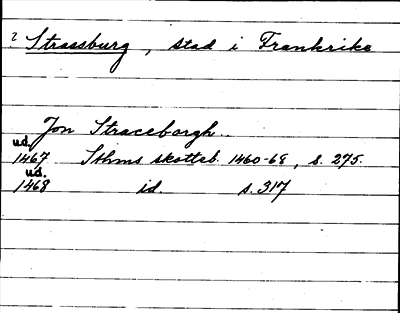 ? Strassburg, stad i Frankrike
Jon Straceborgh.
u.d.
1467 Sthms skotteb. 1460-68, s. 275.
u.d.
1468 id. s. 317